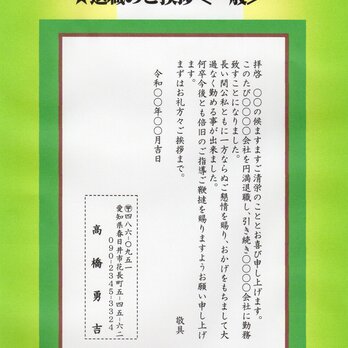 ☆退職のご挨拶＜一般＞
拝啓　〇〇の候ますますご清栄のこととお喜び申し上げます。
このたび〇〇〇〇会社を円満退職し、引き続き〇〇〇〇会社に勤務
致すことになりました。
長い間公私ともに一方ならぬご懇情を賜り、おかげをもちまして大
過なく勤める事が出来ました。
何卒今後とも倍旧のご指導ご鞭撻を賜りますようお願い申し上げ
ます。
まずはお礼方々ご挨拶まで。
敬具
令和〇〇年〇〇月吉日
〠四八六-〇九五一
愛知県春日井市花長町五-四五-六二
090-2345-3324
高橋勇吉